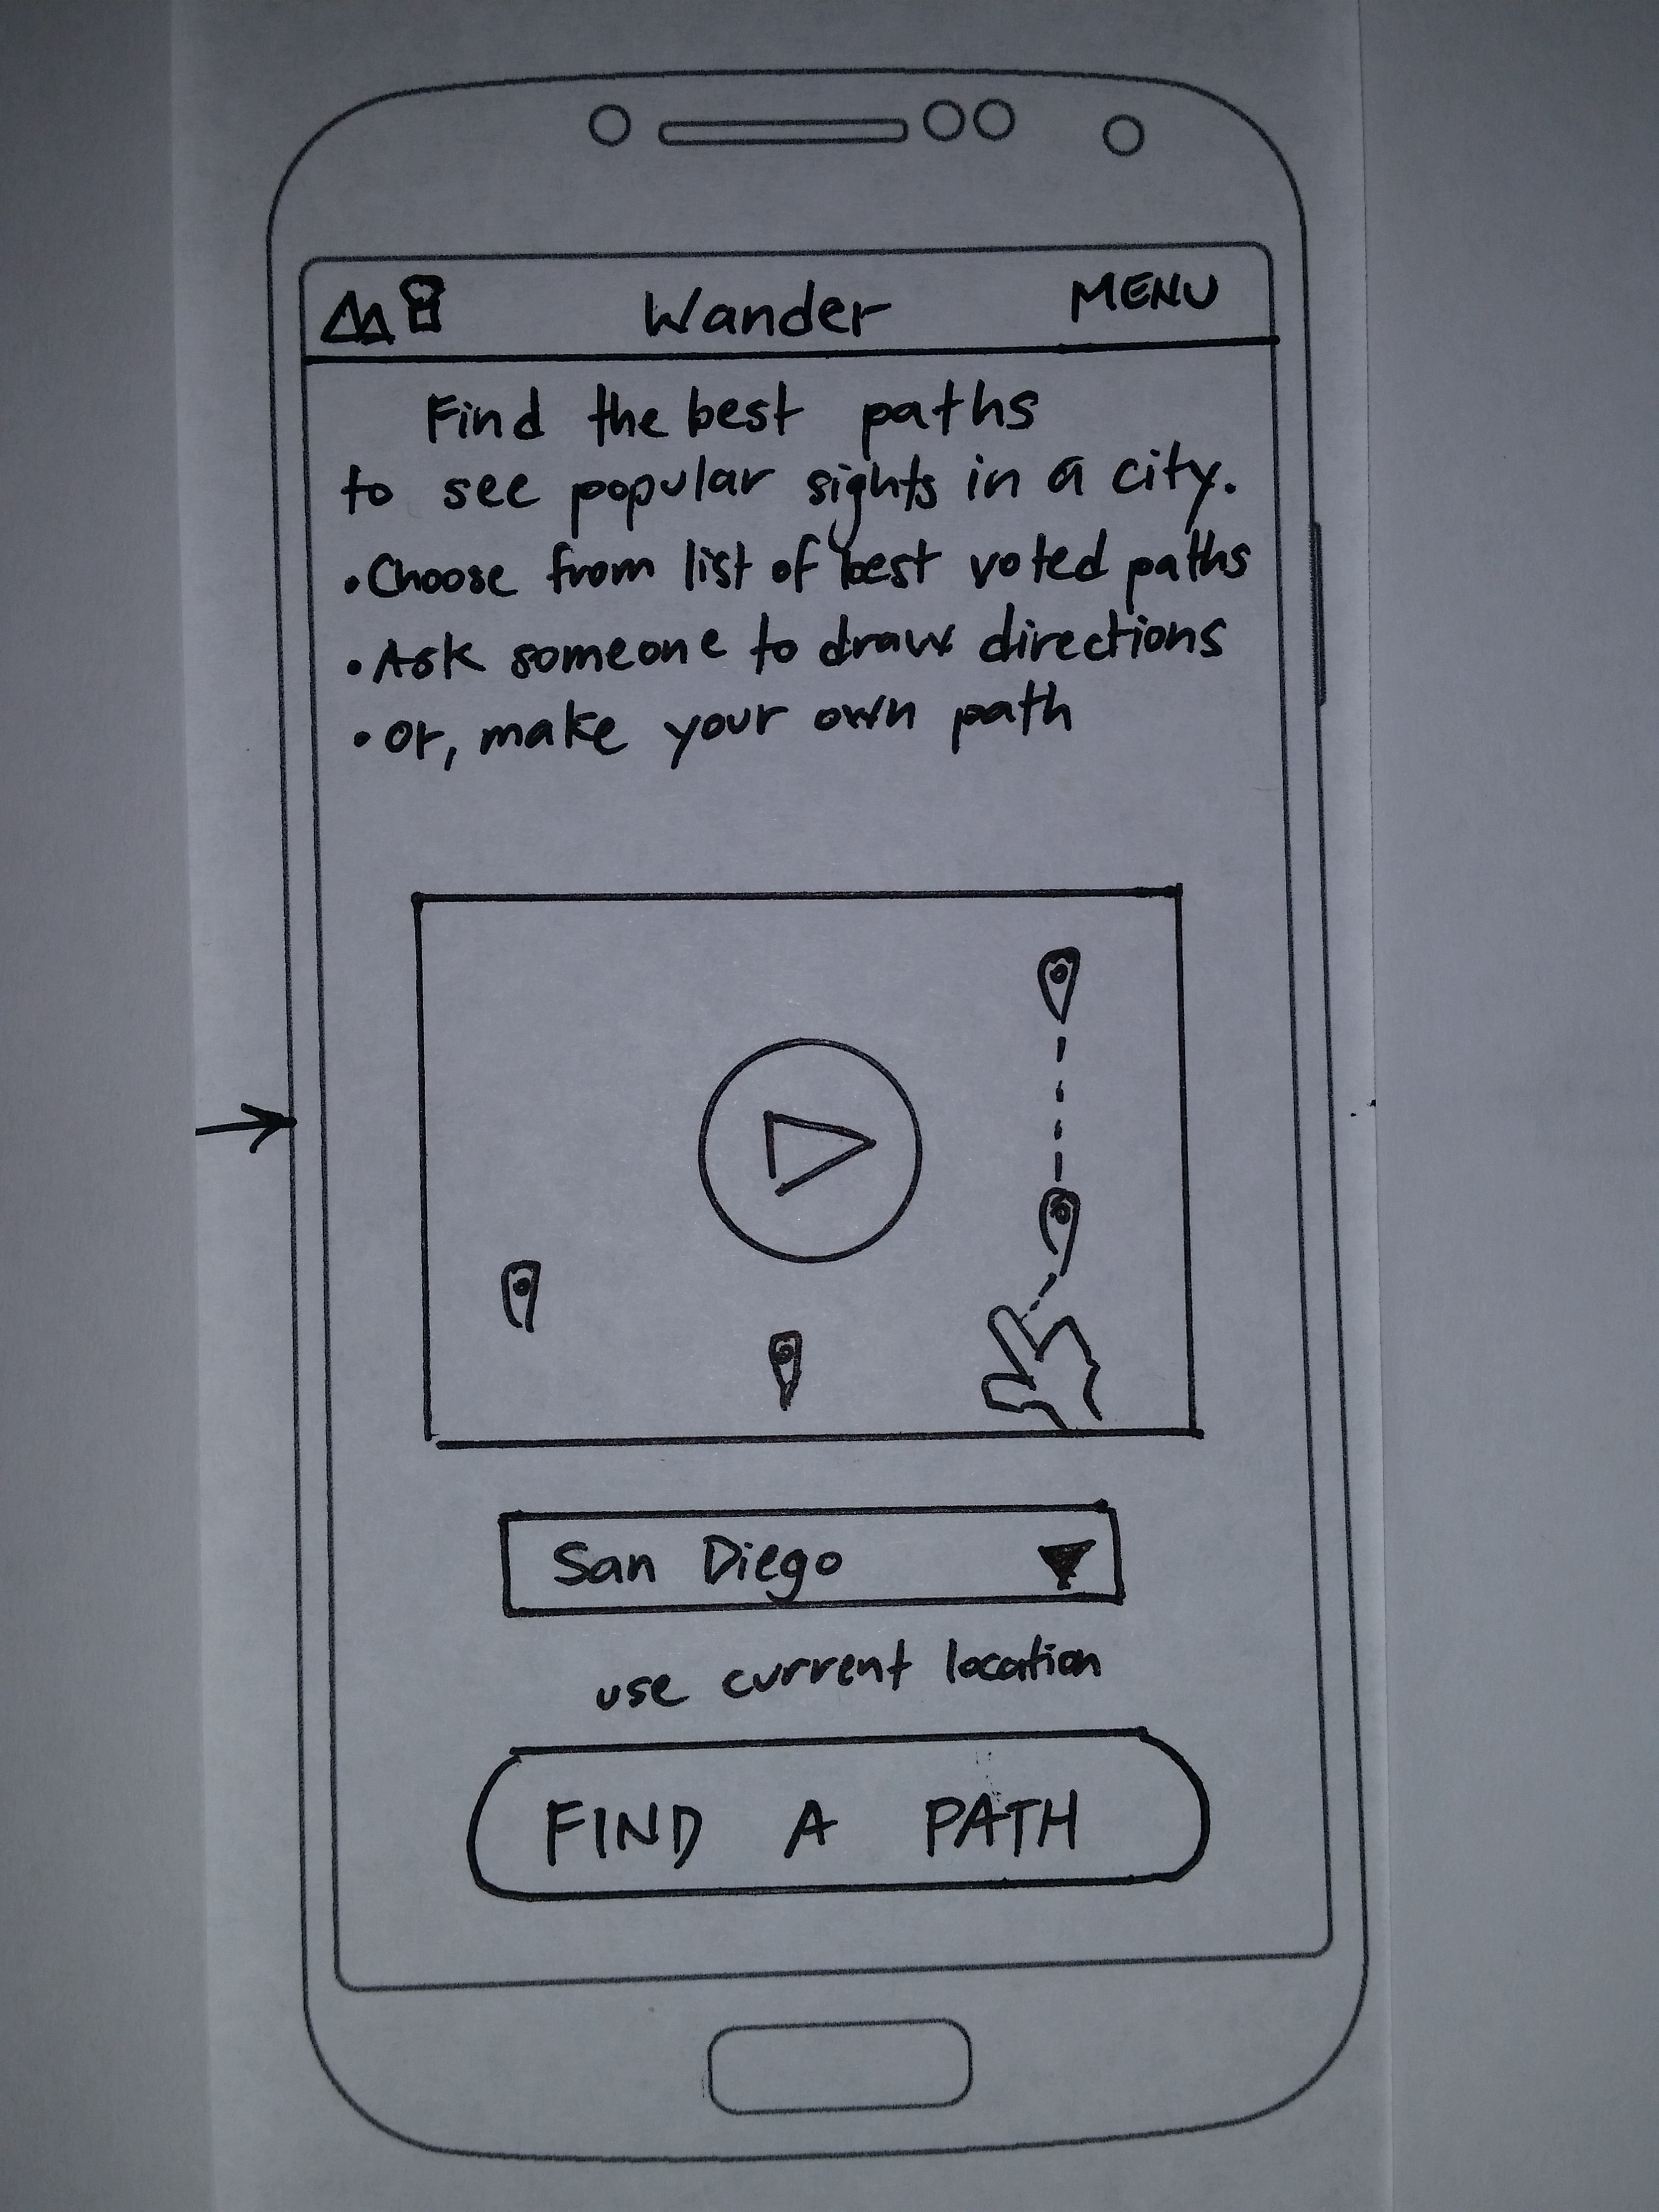 Wander
MENU
Find the best paths
to see popular sights in a city.
• Choose from list of best voted paths
• Ask someone to draw directions
• Or, make your own path
San Diego
use current location
FIND A PATH